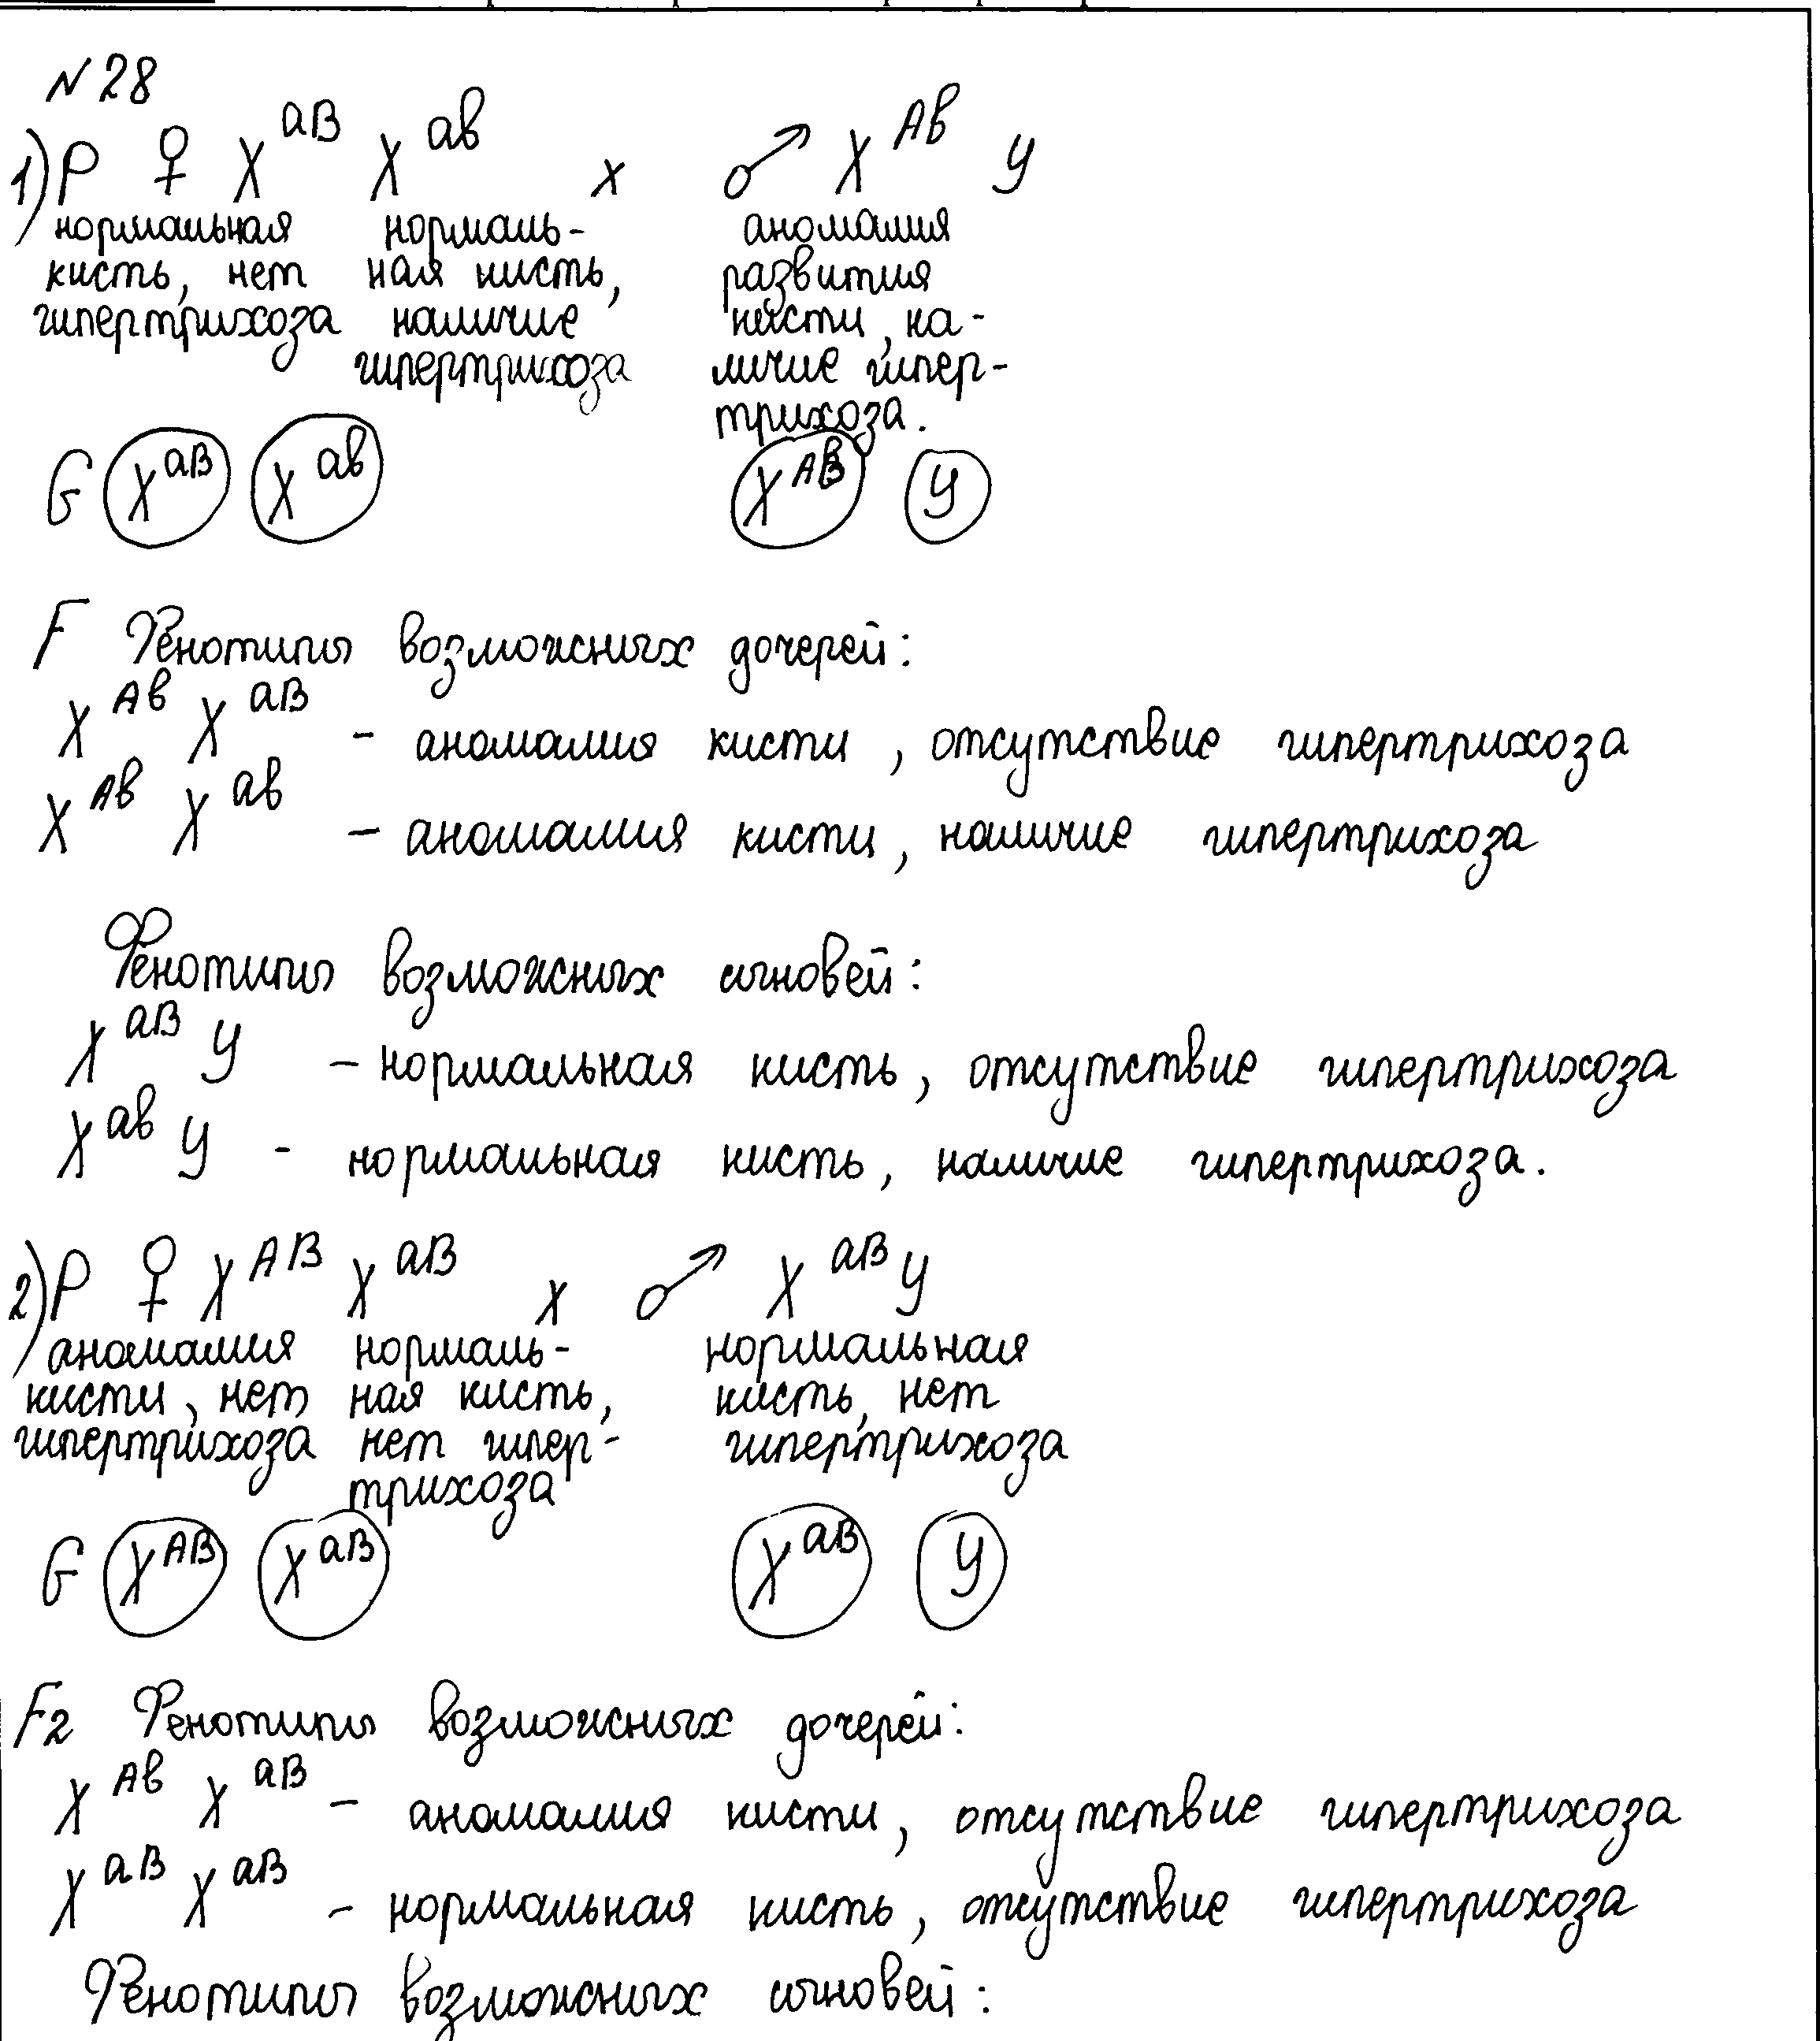 № 28
1) P ♀ X^aB X^ab x ♂ X^Ab Y
нормальная нормаль- аномалия
кисть, нет ная кисть, развития
гипертрихоза наличие кисти, на-
гипертрихоза личие гипер-
трихоза.
G X^aB X^ab X^Ab Y
F Фенотипы возможных дочерей:
X^Ab X^aB - аномалия кисти, отсутствие гипертрихоза
X^Ab X^ab - аномалия кисти, наличие гипертрихоза
Фенотипы возможных сыновей:
X^aB Y - нормальная кисть, отсутствие гипертрихоза
X^ab Y - нормальная кисть, наличие гипертрихоза.
2) P ♀ X^AB X^aB x ♂ X^aB Y
аномалия нормаль- нормальная
кисти, нет ная кисть, кисть, нет
гипертрихоза нет гипер- гипертрихоза
трихоза
G X^AB X^aB X^aB Y
F2 Фенотипы возможных дочерей:
X^Ab X^aB - аномалия кисти, отсутствие гипертрихоза
X^aB X^aB - нормальная кисть, отсутствие гипертрихоза
Фенотипы возможных сыновей: